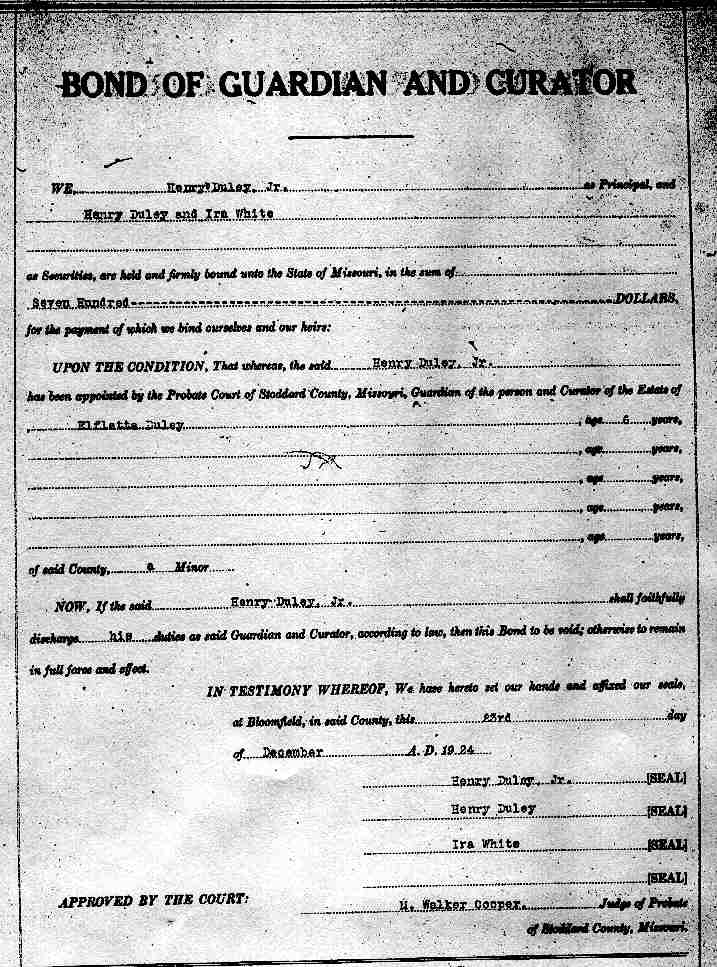 BOND OF GUARDIAN AND CURATOR
WE, Henry Duley, Jr. as Principal, and
Henry Duley and Ira White
as Securities, are held and firmly bound unto the State of Missouri, in the sum of
Seven Hundred DOLLARS,
for the payment of which we bind ourselves and our heirs:
UPON THE CONDITION, That whereas, the said Henry Duley, Jr.
has been appointed by the Probate Court of Stoddard County, Missouri, Guardian of the person and Curator of the Estate of
Elfletta Duley, age 6 years,
, age years,
, age years,
, age years,
, age years,
of said County, a Minor
NOW, If the said Henry Duley, Jr. shall faithfully
discharge his duties as said Guardian and Curator, according to law, then this Bond to be void; otherwise to remain
in full force and effect.
IN TESTIMONY WHEREOF, We have hereto set our hands and affixed our seals,
at Bloomfield, in said County, this 23rd day
of December A. D. 1924
Henry Duley, Jr. [SEAL]
Henry Duley [SEAL]
Ira White [SEAL]
[SEAL]
APPROVED BY THE COURT: Walker Cooper. Judge of Probate
of Stoddard County, Missouri.